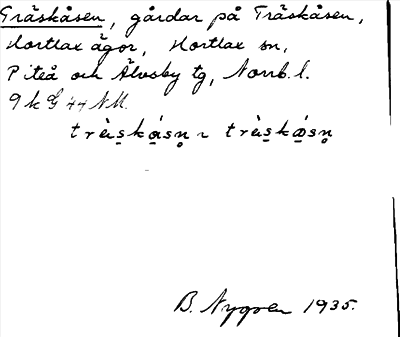 Träskåsen, gårdar på Träskåsen,
Hortlax ägor, Hortlax sn,
Piteå och Älvsby tg, Norrb. l.
9 k G 44 NM.
trä̀s̱ká̱sn̥ ~ trä̀s̱kǻ̱sn̥
B. Nygren 1935.